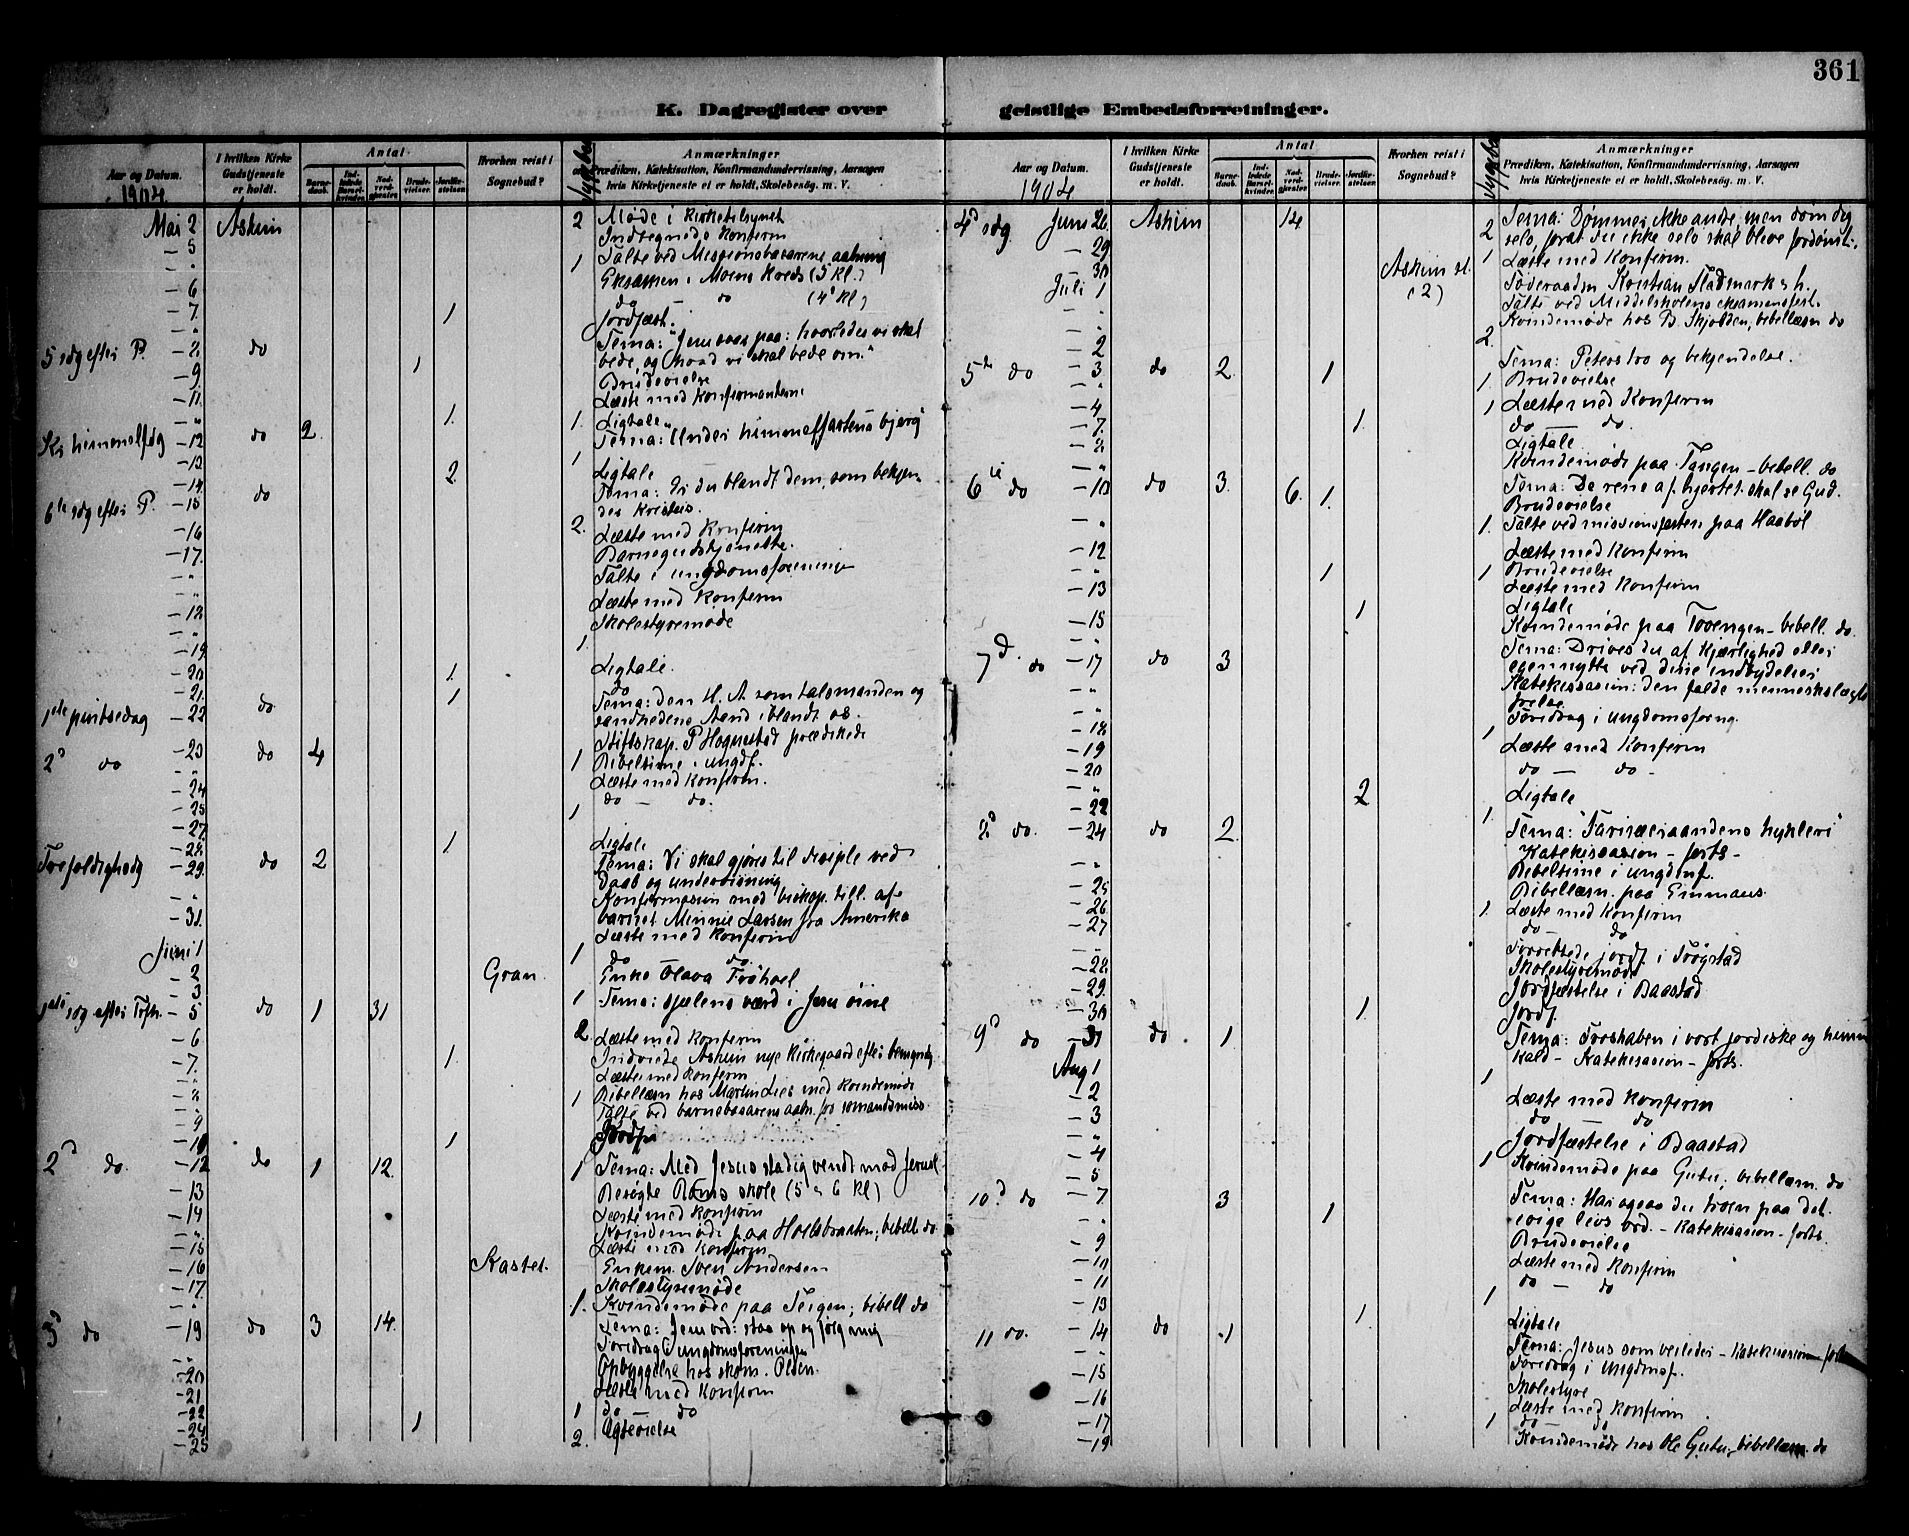 361
K. Dagregister over geistlige Embedsforretninger.
Aar og Datum.
1904
I hvilken Kirke Gudstjeneste er holdt.
Antal
Barne-daab.
Ind-ledede Barsel-kvinder.
Nad-verd-gjester.
Brude-vielser.
Jordfæ-stelser.
Hvorhen reist i Sognebud?
Anmærkninger
Prædiken, Katekisation, Konfirmandundervisning, Aarsagen
hvis Kirketjeneste ei er holdt, Skolebesøg. m. V.
Mai 2 Askim 2 Møde i Kirketilsynet
Indtegnede Konfirm
- 5 Talte ved Missionsbasarens aabning
" 1 Eksamen i Moens Kreds (3 kl.)
- 6 do — do (4 kl)
- 7. 1 Jordfæst.
" Tema: "Jesu svar paa: hvorledes vi skal
5 søg efter P. - 8 do bede, og hvad vi skal bede om."
- 9 1 Brudevielse
- 11. Læste med Konfirmanterne
" 1. 1. Ligtale
Kr himmelfdg - 12 do 2 Tema: "Under himmelfartens bjerg"
- 13 1 Ligtale
- 14 2 Tema: Er du blandt dem, som bekjen-
6te søg efter P. - 15 do des Kristus.
- 16 2. Læste med Konfirm
- 17. Barnegudstjeneste.
" Talte i ungdomsforeningen
" Læste med Konfirm
- 18 Skolestyremøde
" 1.
- 19 Ligtale.
- 20 1 do
- 21. 1 Tema: den H. A. som talsmanden og
1ste pintsedag - 22 do sandhedens Aand iblandt os.
Stiftskap. P Hognestad prædikede
2d do - 23 do 4 1 Bibeltime i ungdf.
" Læste med Konfirm.
- 24 do — do.
- 25 1
- 27
- 28. 1 Ligtale
Trefoldighedsdg - 29 do 2 Tema: Vi skal gjøres til disiple ved
Daab og undervisning
" Konfirmasion med biskop. till. af
- 31. barnet Minnie Larsen fra Amerika
Læste med Konfirm
Juni 1 1 do do.
- 2 Gran. Enke Olava Frøhoel
- 3 1 Tema: sjælens værd i Jesu øine
1ste søg efter Trfh. - 5 do 1 31
- 6 2 Læste med Konfirm
- 7. 1. Indviede Askim nye Kirkegaard efter bemyndg
" Læste med Konfirm
- 8 1 Bibellæsn hos Martin Lies med Kvindemøde
" Talte ved barnebasarens aabn. for sømandsmiss.
- 9 Jordf
- 10 1
2d do. - 12 do 1 12. 1 Tema: Med Jesus stadig vendt mod Jerusl.
- 13 Besøgte Røms skole (5 & 6 kl)
- 14 Læste med Konfirm
" Kvindemøde paa Hoelsbraaten; bebell. do
- 15 Læste med Konfirm
- 16 Kastet. Enkem. Sven Andersen
- 17. Skolestyremøde
" 1. Kvindemøde paa Teigen; bibell do
3d do - 19 do 3 14. Tema: Jesu ord: staa op og følg mig
" Foredrag i ungdomsforeningen
- 20 Opbyggelse hos skom. Olsen.
- 21 Læste med Konfirm
- 22 1 do — do
- 24 1 Ægtevielse
- 25 2.
Aar og Datum.
1904
I hvilken Kirke Gudstjeneste er holdt.
Antal
Barne-daab.
Ind-ledede Barsel-kvinder.
Nad-verd-gjester.
Brude-vielser.
Jordfæ-stelser.
Hvorhen reist i Sognebud?
Anmærkninger
Prædiken, Katekisation, Konfirmandundervisning, Aarsagen
hvis Kirketjeneste ei er holdt, Skolebesøg. m. V.
4d søg. Juni 26 Askim 14 2 Tema: Dømmer ikke andre, men døm dig
- 29 selv, forat du ikke selv skal blive fordømt.
- 30 Askim st. 1 Læste med Konfirm.
Juli 1 (2) Føderaadsm Kristian Stadmarks h.
" Talte ved Middelskolens eksamensfest.
- 2 2. Kvindemøde hos B. Skjolden, bebellæsn do
5te do - 3 do 2 1 Tema: Peters tro og bekjendelse.
" 1. Brudevielse
- 4 1 Læste med Konfirm
- 7. 1. do — do.
- 8 Ligtale.
" Kvindemøde paa Tangen - bebell. do
6te do - 10 do 3. 6. 1. Tema: De rene af hjertet skal se Gud.
Brudevielse
" 1. Talte ved missionsfesten paa Haabøl
- 12 Læste med Konfirm
" 1 1 Brudevielse
- 13 Læste med Konfirm
- 15 1 Ligtale
" Kvindemøde paa Tovengen - bebell. do.
7d. do - 17 do 3 Tema: Drives du af Kjærlighed eller
egennytte ved dine indbydelser
" Katekisasion: den falde menneskeslægts
" frelse
- 18 1 Foredrag i ungdomsforng.
- 19 Læste med Konfirm
- 20 do — do -
" 2 Ligtale
- 22 1.
8d do. - 24 do 2 Tema: "Farisæeraandens hykleri"
" Katekisasion - forts -
- 25 Bibeltime i ungdmf.
- 26 Bibellæsn. paa Emmaus.
- 27 1. Læste med Konfirm
" do — do
- 28 Forrettede jordf. i Trøgstad
- 29. Skolestyremøde
- 30 1. Jordfæstelse i Baastad
Jordf.
9d do - 31 do 1. Tema: Troskaben i vort jordiske og himm
Aug 1 kald - Katekisasion - forts.
1
- 2 Læste med Konfirm
- 3 do do
" Jordfæstelse i Baastad
- 4 1 Kvindemøde paa Gutu; bebellæsn. do
- 5
10d do - 7 3 1 Tema: Har ogsaa du troen paa det
evige livs ord. - Katekisasion - forts.
" Brudevielse
- 9 Læste med Konfirm
- 10 do — do
- 11 1
- 13 1. Ligtale
11 do. - 14 do 1 Tema: Jesus som veileder - Katekisasion - forts
" Foredrag i ungdmsf.
- 15 Skolestyre
- 16 Læste med Konfirm
- 17 1 do — do
- 19 Kvindemøde hos Ole Gutu; bebellæsn. do